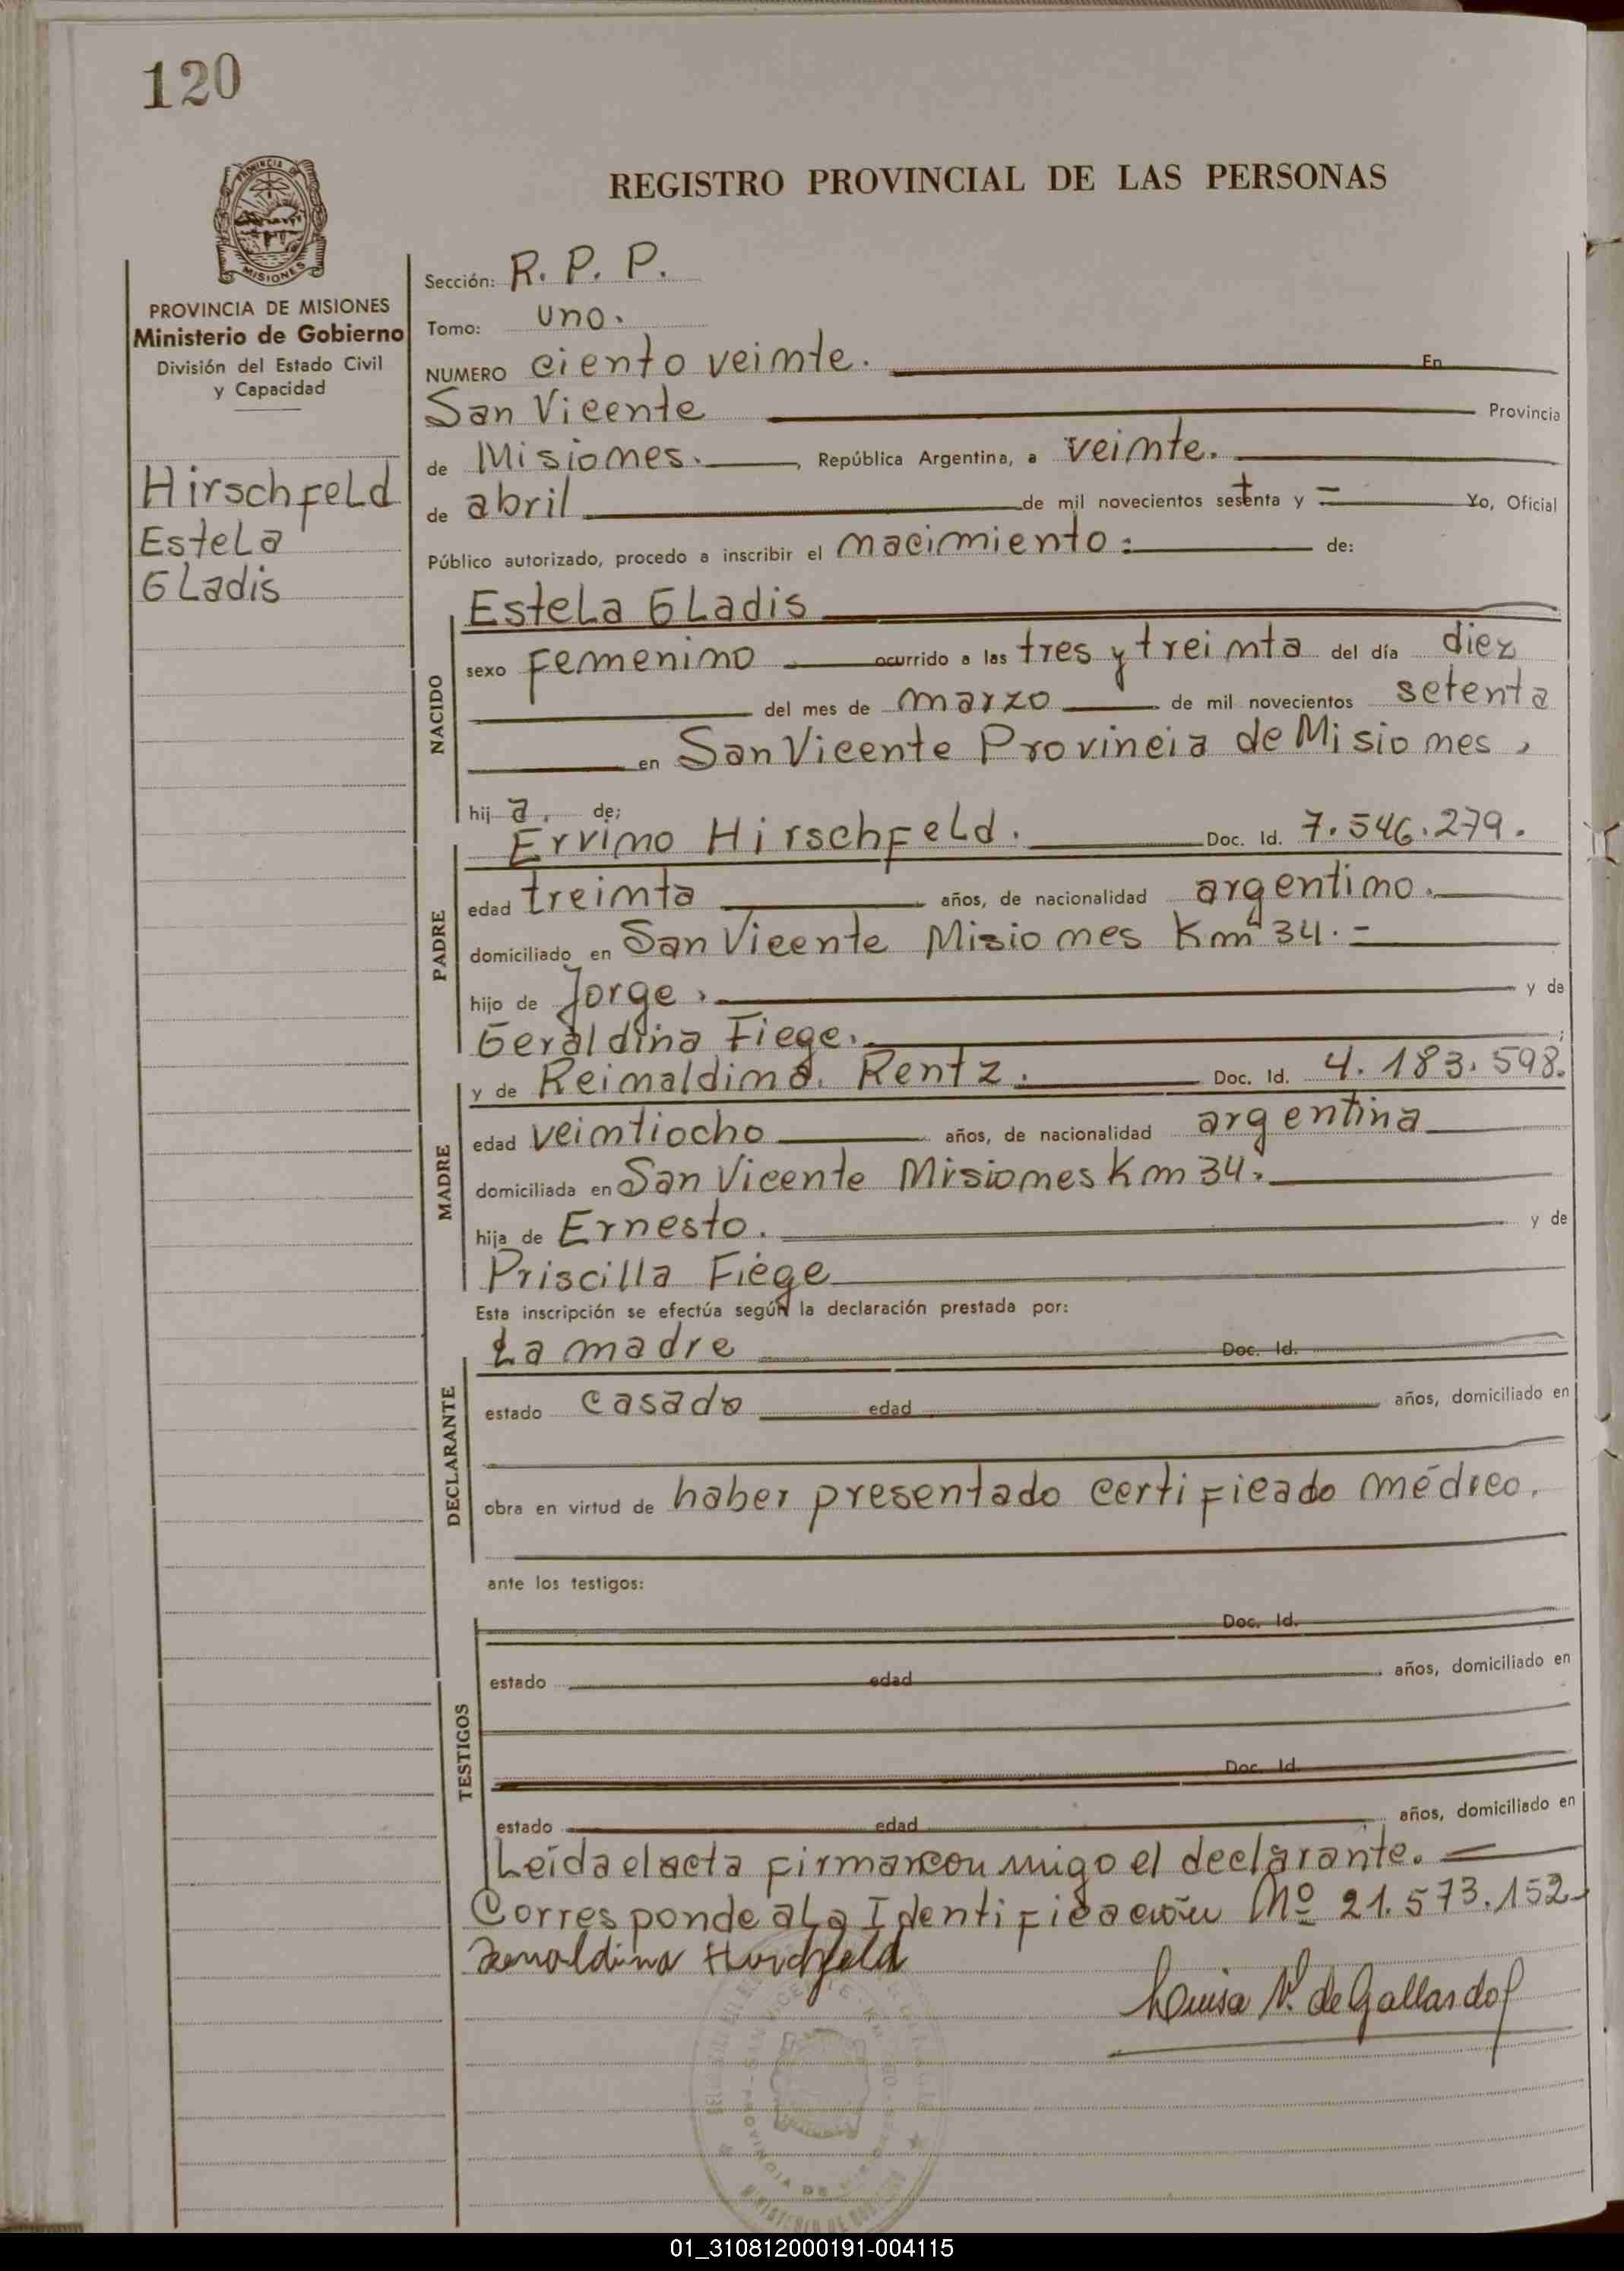 120
PROVINCIA DE
MISIONES
REGISTRO PROVINCIAL DE LAS PERSONAS
PROVINCIA DE MISIONES
Ministerio de Gobierno
División del Estado Civil
y Capacidad
Hirschfeld
Estela
Gladis
Sección: R. P. P.
Tomo: uno.
NUMERO ciento veinte. En
San Vicente Provincia
de Misiones. , República Argentina, a veinte.
de abril de mil novecientos setenta y = Yo, Oficial
Público autorizado, procedo a inscribir el nacimiento: de:
NACIDO
Estela Gladis
sexo femenino ocurrido a las tres y treinta del día diez
del mes de marzo de mil novecientos setenta
en San Vicente Provincia de Misiones,
hij a. de;
PADRE
Ervino Hirschfeld. Doc. Id. 7.546.279.
edad treinta años, de nacionalidad argentino.
domiciliado en San Vicente Misiones Km 34.-
hijo de Jorge, y de
Geraldina Fiege. ;
MADRE
y de Reinaldina. Rentz. Doc. Id. 4.183.598.
edad veintiocho años, de nacionalidad argentina
domiciliada en San Vicente Misiones Km 34.
hija de Ernesto. y de
Priscilla Fiege
Esta inscripción se efectúa según la declaración prestada por:
DECLARANTE
La madre Doc. Id.
estado casado edad años, domiciliado en
obra en virtud de haber presentado certificado médico.
ante los testigos:
TESTIGOS
Doc. Id.
estado edad años, domiciliado en
Doc. Id.
estado edad años, domiciliado en
Leída el acta firman con migo el declarante.
Corresponde a La Identificación Nº 21.573.152
Hirchfeld
Luisa V. de Gallardo
01_310812000191-004115